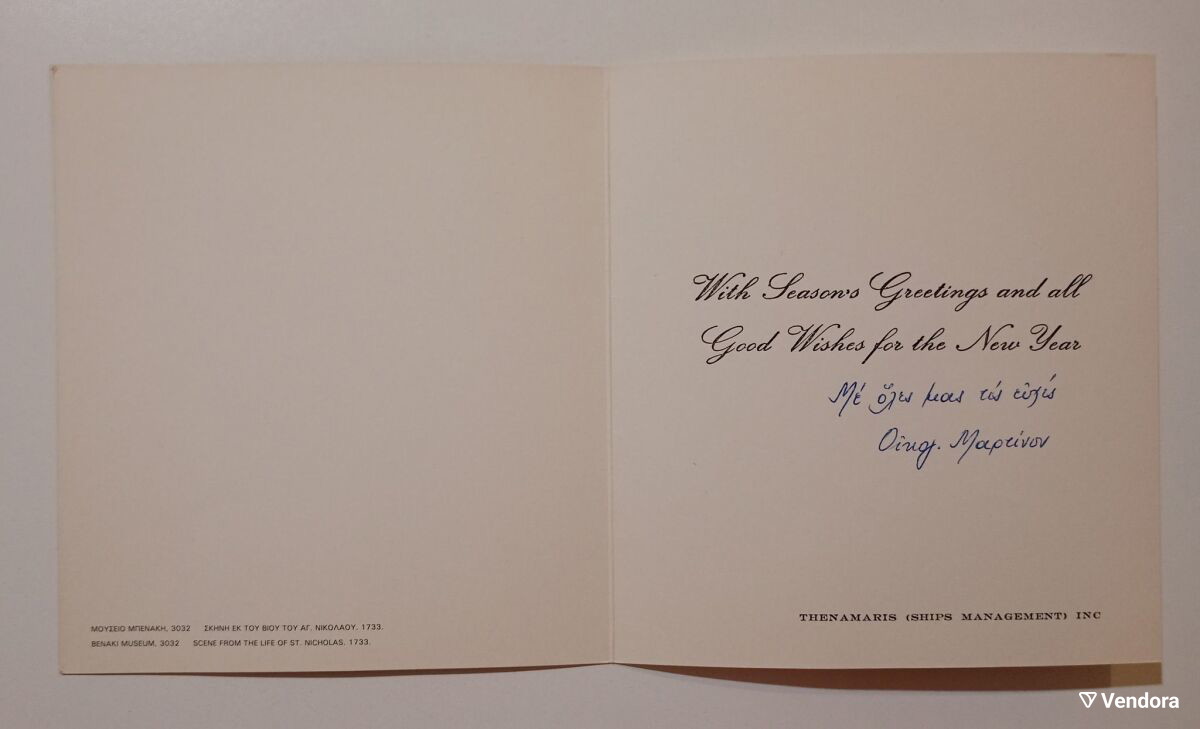 With Season's Greetings and all
Good Wishes for the New Year
Μέ ὅλες μας τίς εὐχές
Οἰκογ. Μαρτίνου
THENAMARIS (SHIPS MANAGEMENT) INC
ΜΟΥΣΕΙΟ ΜΠΕΝΑΚΗ, 3032 ΣΚΗΝΗ ΕΚ ΤΟΥ ΒΙΟΥ ΤΟΥ ΑΓ. ΝΙΚΟΛΑΟΥ. 1733.
BENAKI MUSEUM, 3032 SCENE FROM THE LIFE OF ST. NICHOLAS. 1733.
Vendora